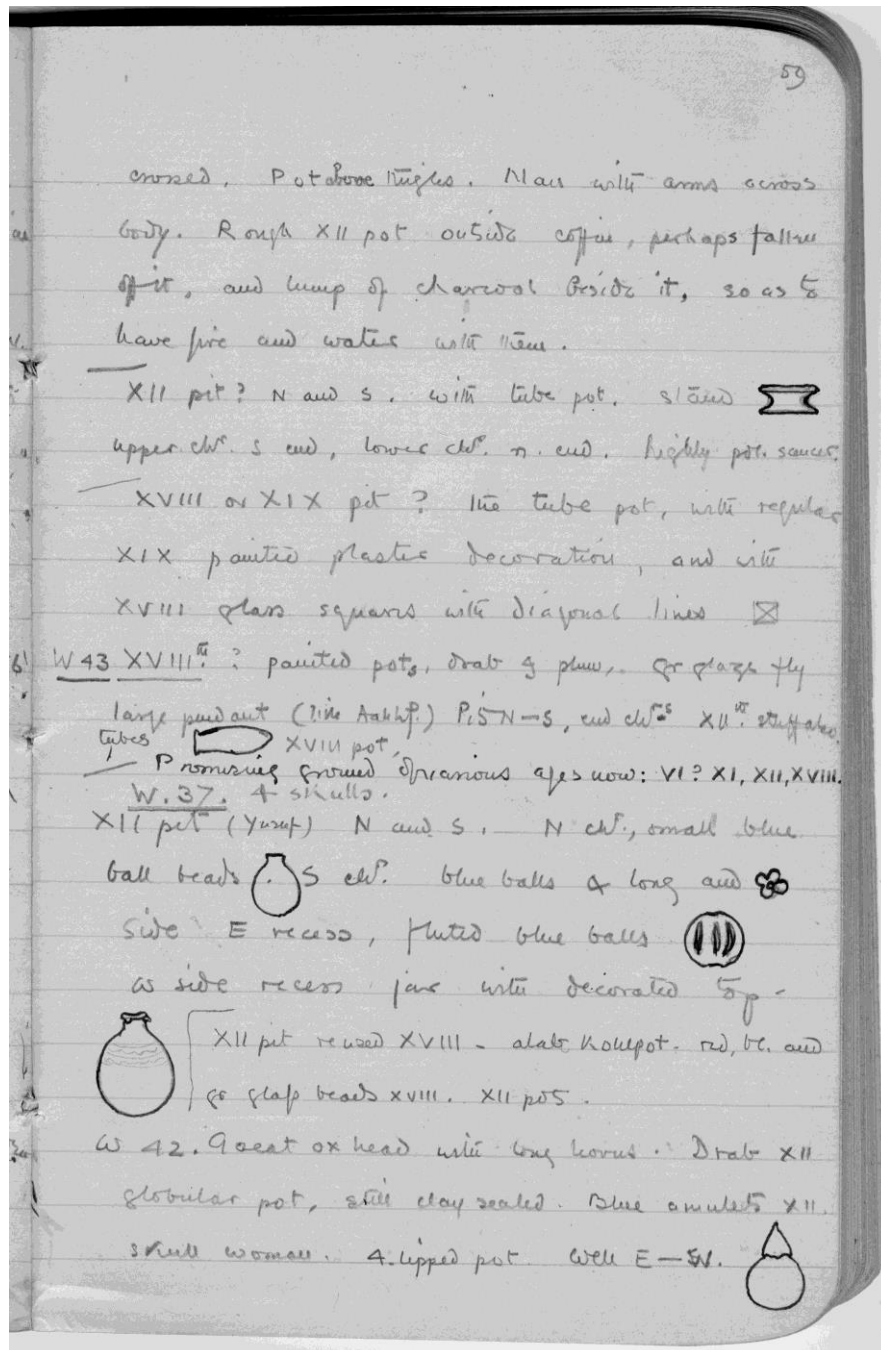 59
crossed. Pot above thighs. Man with arms across
body. Rough XII pot outside coffin, perhaps fallen
off it, and lump of charcoal beside it, so as to
have fire and water with them.
XII pit? N and S. with tube pot. stand
upper chr. S end, lower chr. n. end. highly pol. saucer.
XVIII or XIX pit? the tube pot, with regular
XIX painted plaster decoration, and with
XVIII glass squares with diagonal lines
W 43 XVIIIth? painted pots, drab & plum, gr glaze fly
large pendant (like Aahhf.) Pit N–S, end chrs XIIth stuff also.
tubes XVIII pot,
Promising ground of various ages now: VI? XI, XII, XVIII.
W. 37. 4 skulls.
XII pit (Yusuf) N and S. N chr., small blue
ball beads. S chr. blue balls & long and
side E recess, fluted blue balls
W side recess jar with decorated top -
XII pit reused XVIII - alab. Kohlpot. red, bl. and
gr glass beads XVIII. XII pot.
W 42. Great ox head with long horns. Drab XII
globular pot, still clay sealed. Blue amulets XII.
skull woman. 4-lipped pot. Well E–W.